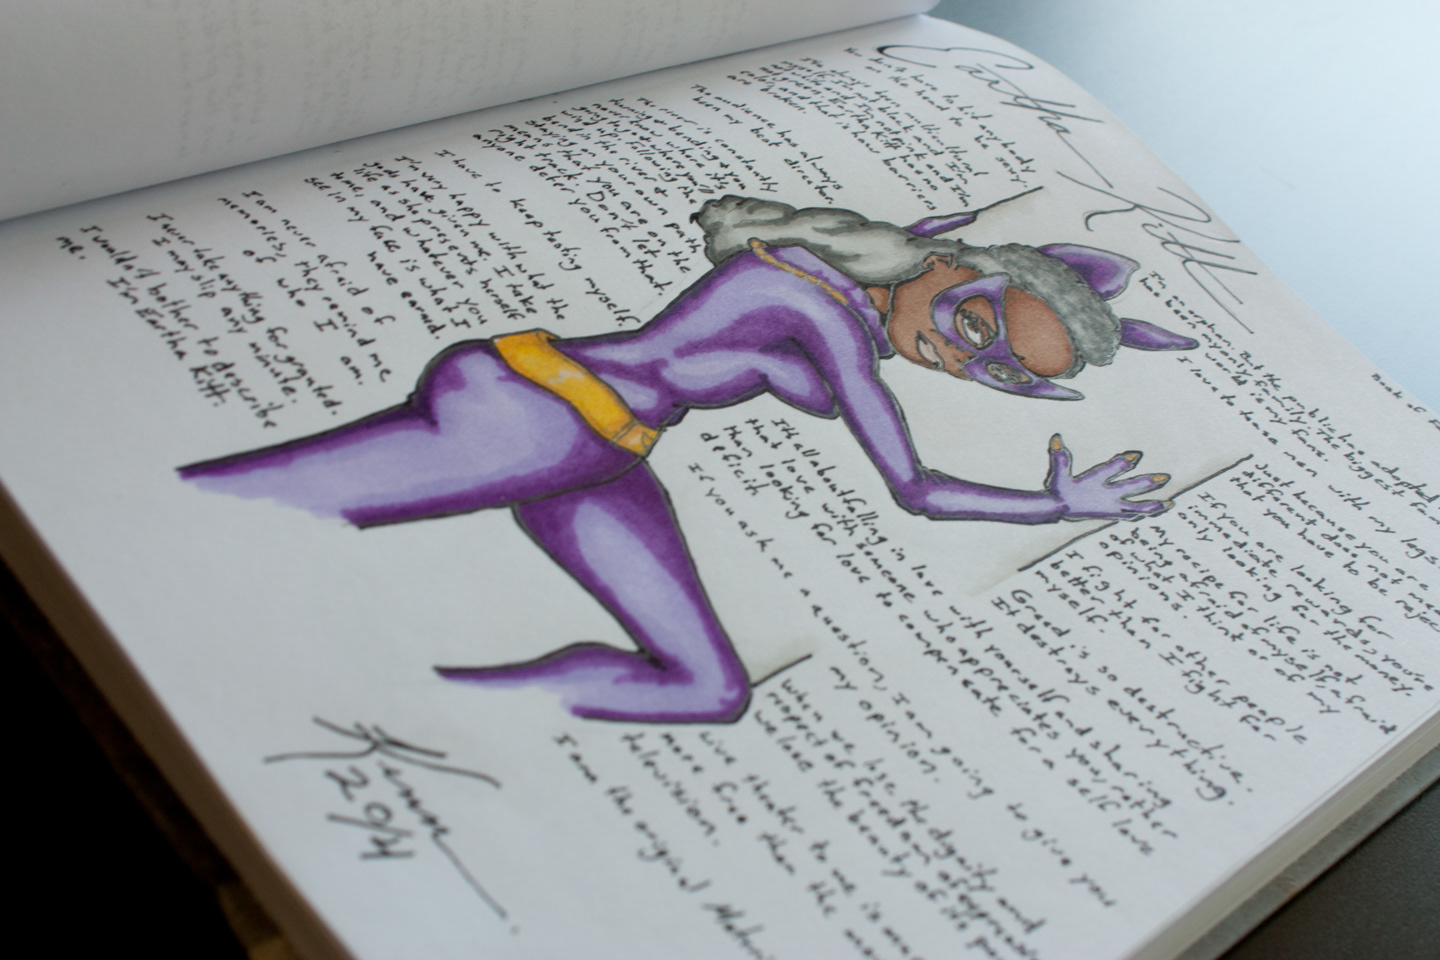 Eartha Kitt
You don't have to hit anybody
on the head to be sexy.
The audience has always
been my best director.
The river is constantly
turning and bending & you
never know where it's
going to go & where you'll
wind up. Following the
bend in the river &
staying on your own path
means that you are on the
right track. Don't let
anyone deter you from that.
I have to keep testing myself.
I'm very happy with what the
gods have given me, I take
life as she presents herself
to me, and whatever you
see in my face is what I
have earned
I am never afraid of
memories; they remind me
of who I am.
I never take anything for granted.
I may slip any minute.
I wouldn't bother to describe
me. I'm Eartha Kitt.
I'm an orphan. But the public has adopted
me &
family. The biggest
in the world is my fans.
I love to tease men with my legs
Just because you are
different does not mean
that you have to be
If you are looking for
immediate rewards, you're
only looking for the money.
My recipe for life is not
being afraid of myself, afraid
of what I think or of my
opinions.
I fight for other people
better than I fight for
myself.
Greed is so destructive.
It destroys everything.
It's all about falling in love with yourself and sharing
that love with someone who appreciates you, rather
than looking for love to compensate for a self love
deficit.
If you ask me a question, I am going to give you
my opinion.
When we lose the dignity and
respect of freedom, of
we lose the beauty of its
Live theater to me is
more free than the
television.
I am the original
Kemoe
2014